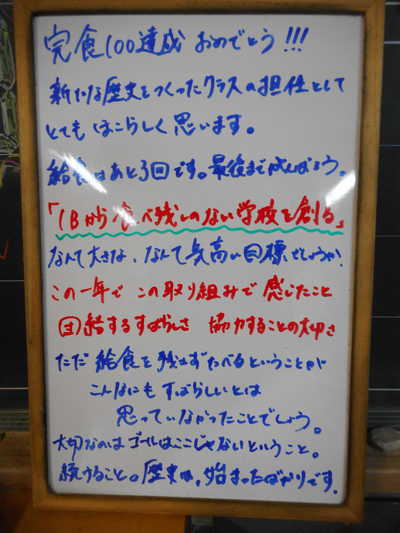 完食100達成 おめでとう!!!
新たな歴史をつくったクラスの担任として
とてもほこらしく思います。
給食はあと3回です。最後までがんばろう。
「1Bから食べ残しのない学校を創る」
なんて大きな、なんて気高い目標でしょうか。
この一年で この取り組みで 感じたこと
団結するすばらしさ 協力することの大切さ
ただ 給食を残さずたべるということが
こんなにも すばらしいとは
思っていなかったことでしょう。
大切なのはゴールはここじゃないということ。
続けること。歴史は、始まったばかりです。